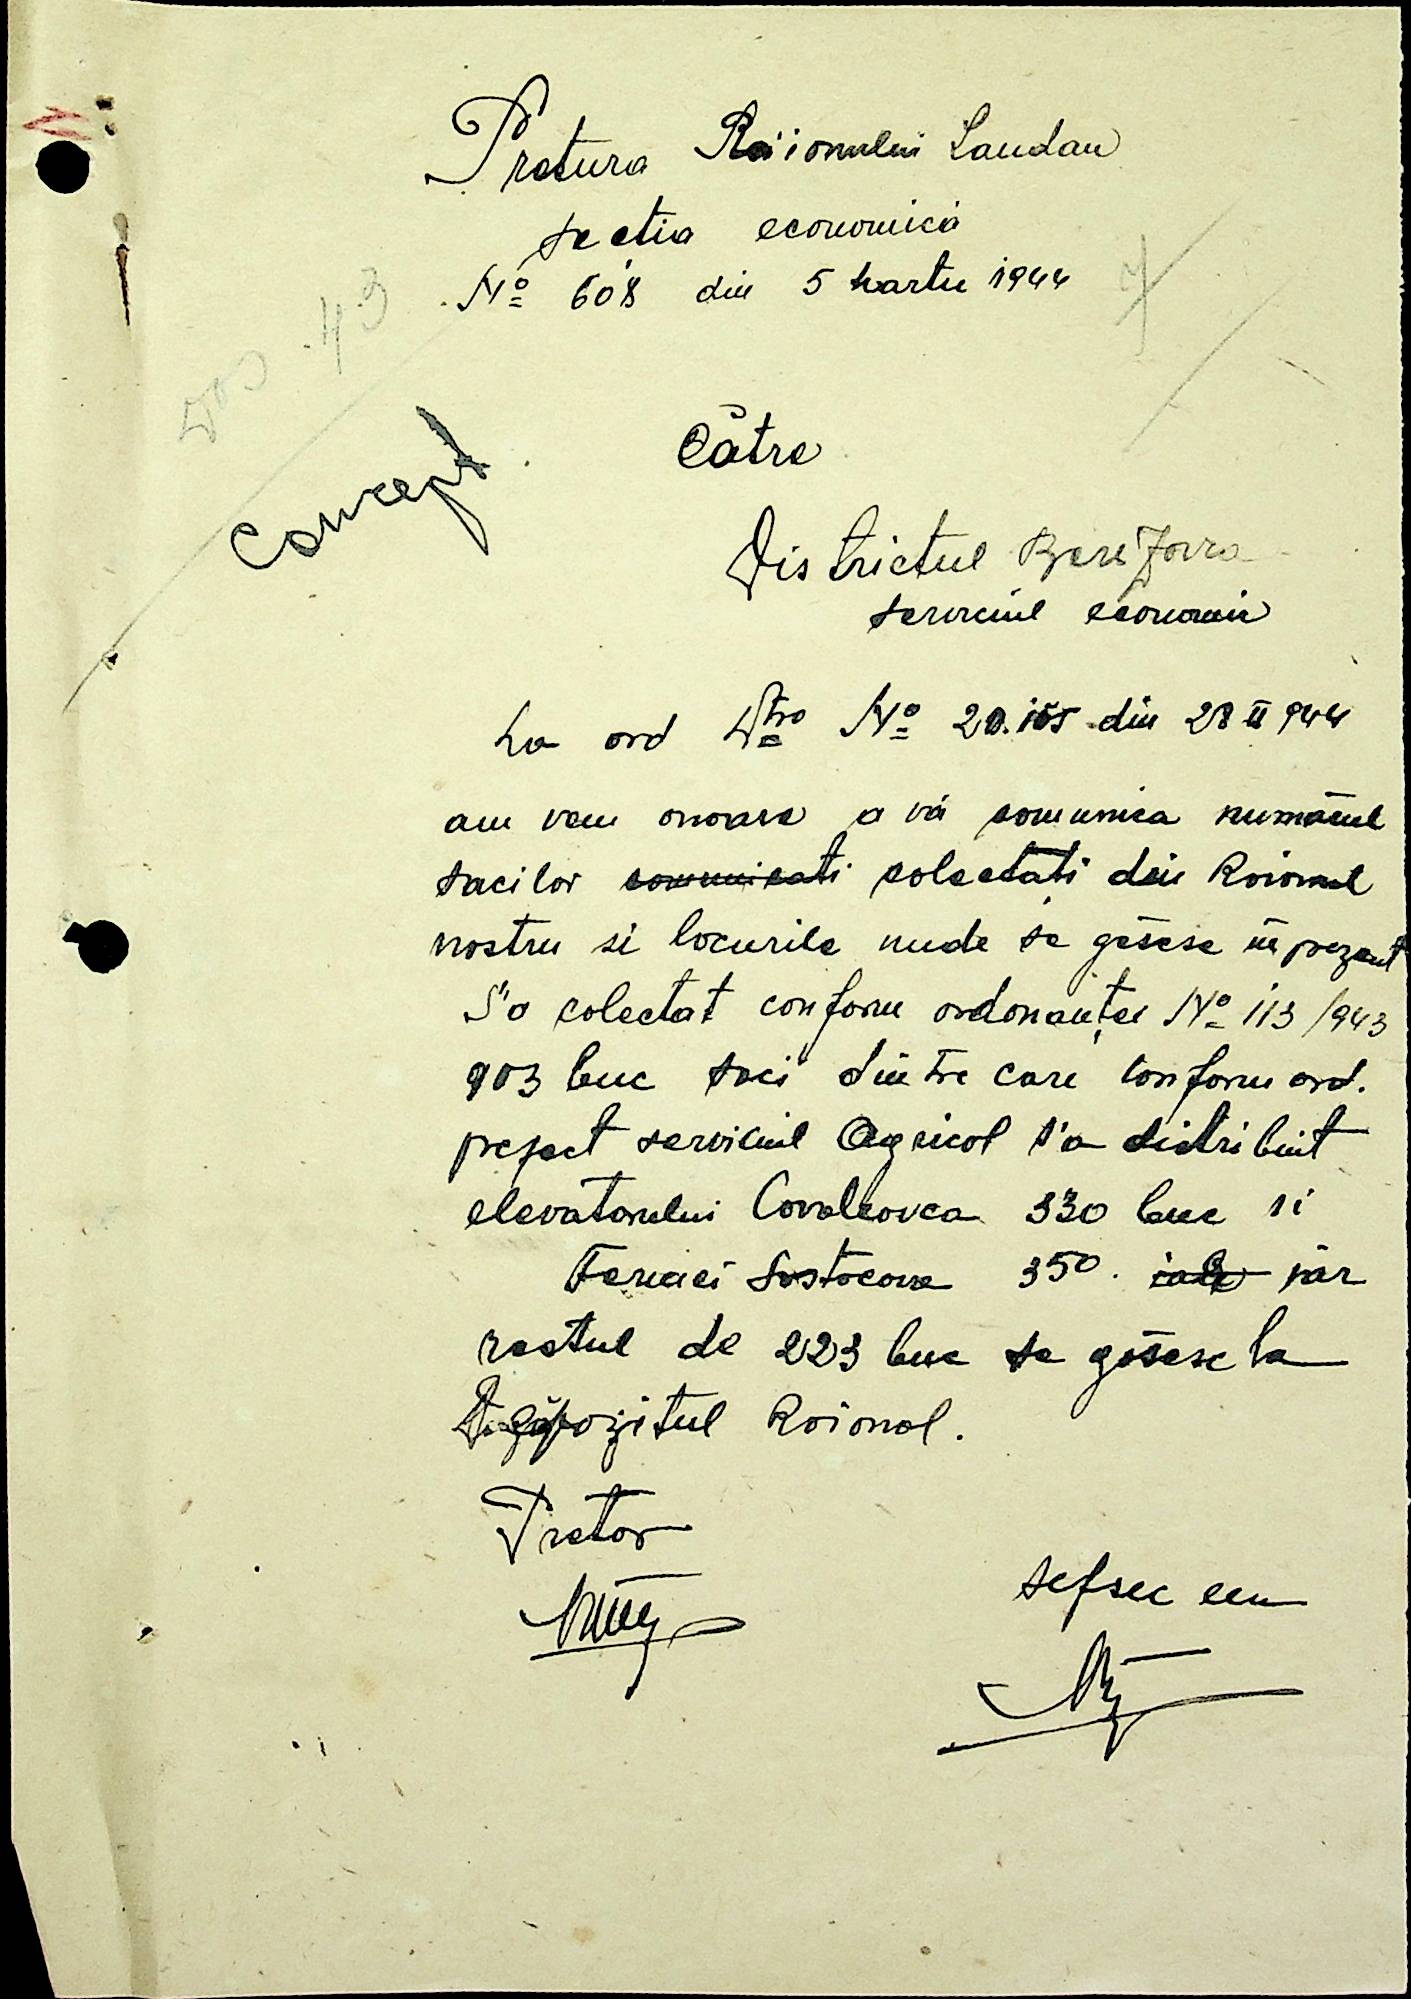 Pretura Raionului Landau
sectia economică
Nº 608 din 5 Martie 1944
Dos. 43
Concept
Către
Districtul Berezovca
serviciul economic
La ord Dtră Nº 20.105 din 28 II 944
am vem onoare a vă comunica numărul
sacilor comunicati colectati din Raionul
nostru si locurile unde se găsesc in prezent
S'a colectat conform ordonanței Nº 113/943
903 buc saci dintre cari conform ord.
prefect serviciul Agricol s'a distribuit
elevatorului Covaleovca 330 buc si
Fermei 350. iar
restul de 223 buc se găsesc la
Depozitul Raional.
Pretor
sef sec ecn